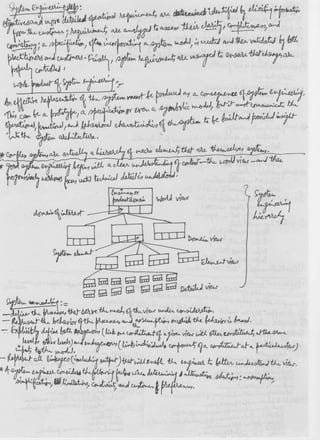 System Engineering step:
objectives and more detailed operational requirements are identified by eliciting information
from the customer; requirements are analyzed to assess their clarity, completeness, and
consistency; a specification, often incorporating a system model, is created and then validated by both
practitioners and customers. Finally, system requirements are managed to ensure that changes are
properly controlled.
work product of System engineering -
An effective representation of the system must be produced as a consequence of system engineering.
This can be a prototype, a specification or even a symbolic model, but it must communicate the
operational, functional, and behavioral characteristics of the system to be built and provide insight
into the system architecture.
* Complex systems are actually a hierarchy of macro elements that are themselves systems.
* good system engineering begins with a clear understanding of context - the world view - and then
progressively narrows focus until technical detail is understood.
Business or
product domain
World view
domain of interest
Domain view
System element
Element view
Detailed view
System
Engineering
hierarchy
System modeling :-
- define the processes that serve the needs of the view under consideration.
- Represent the behavior of the processes and the assumptions on which the behavior is based.
- Explicitly define both exogenous (link one constituent of a given view with other constituents at the same
level or other levels) and endogenous (link individual components of a constituent at a particular view)
input to the model.
- Represent all linkages (including output) that will enable the engineer to better understand the view.
* A system engineer considers the following factors when determining alternative solutions: assumptions,
simplifications, limitations, constraints, and customer preferences.